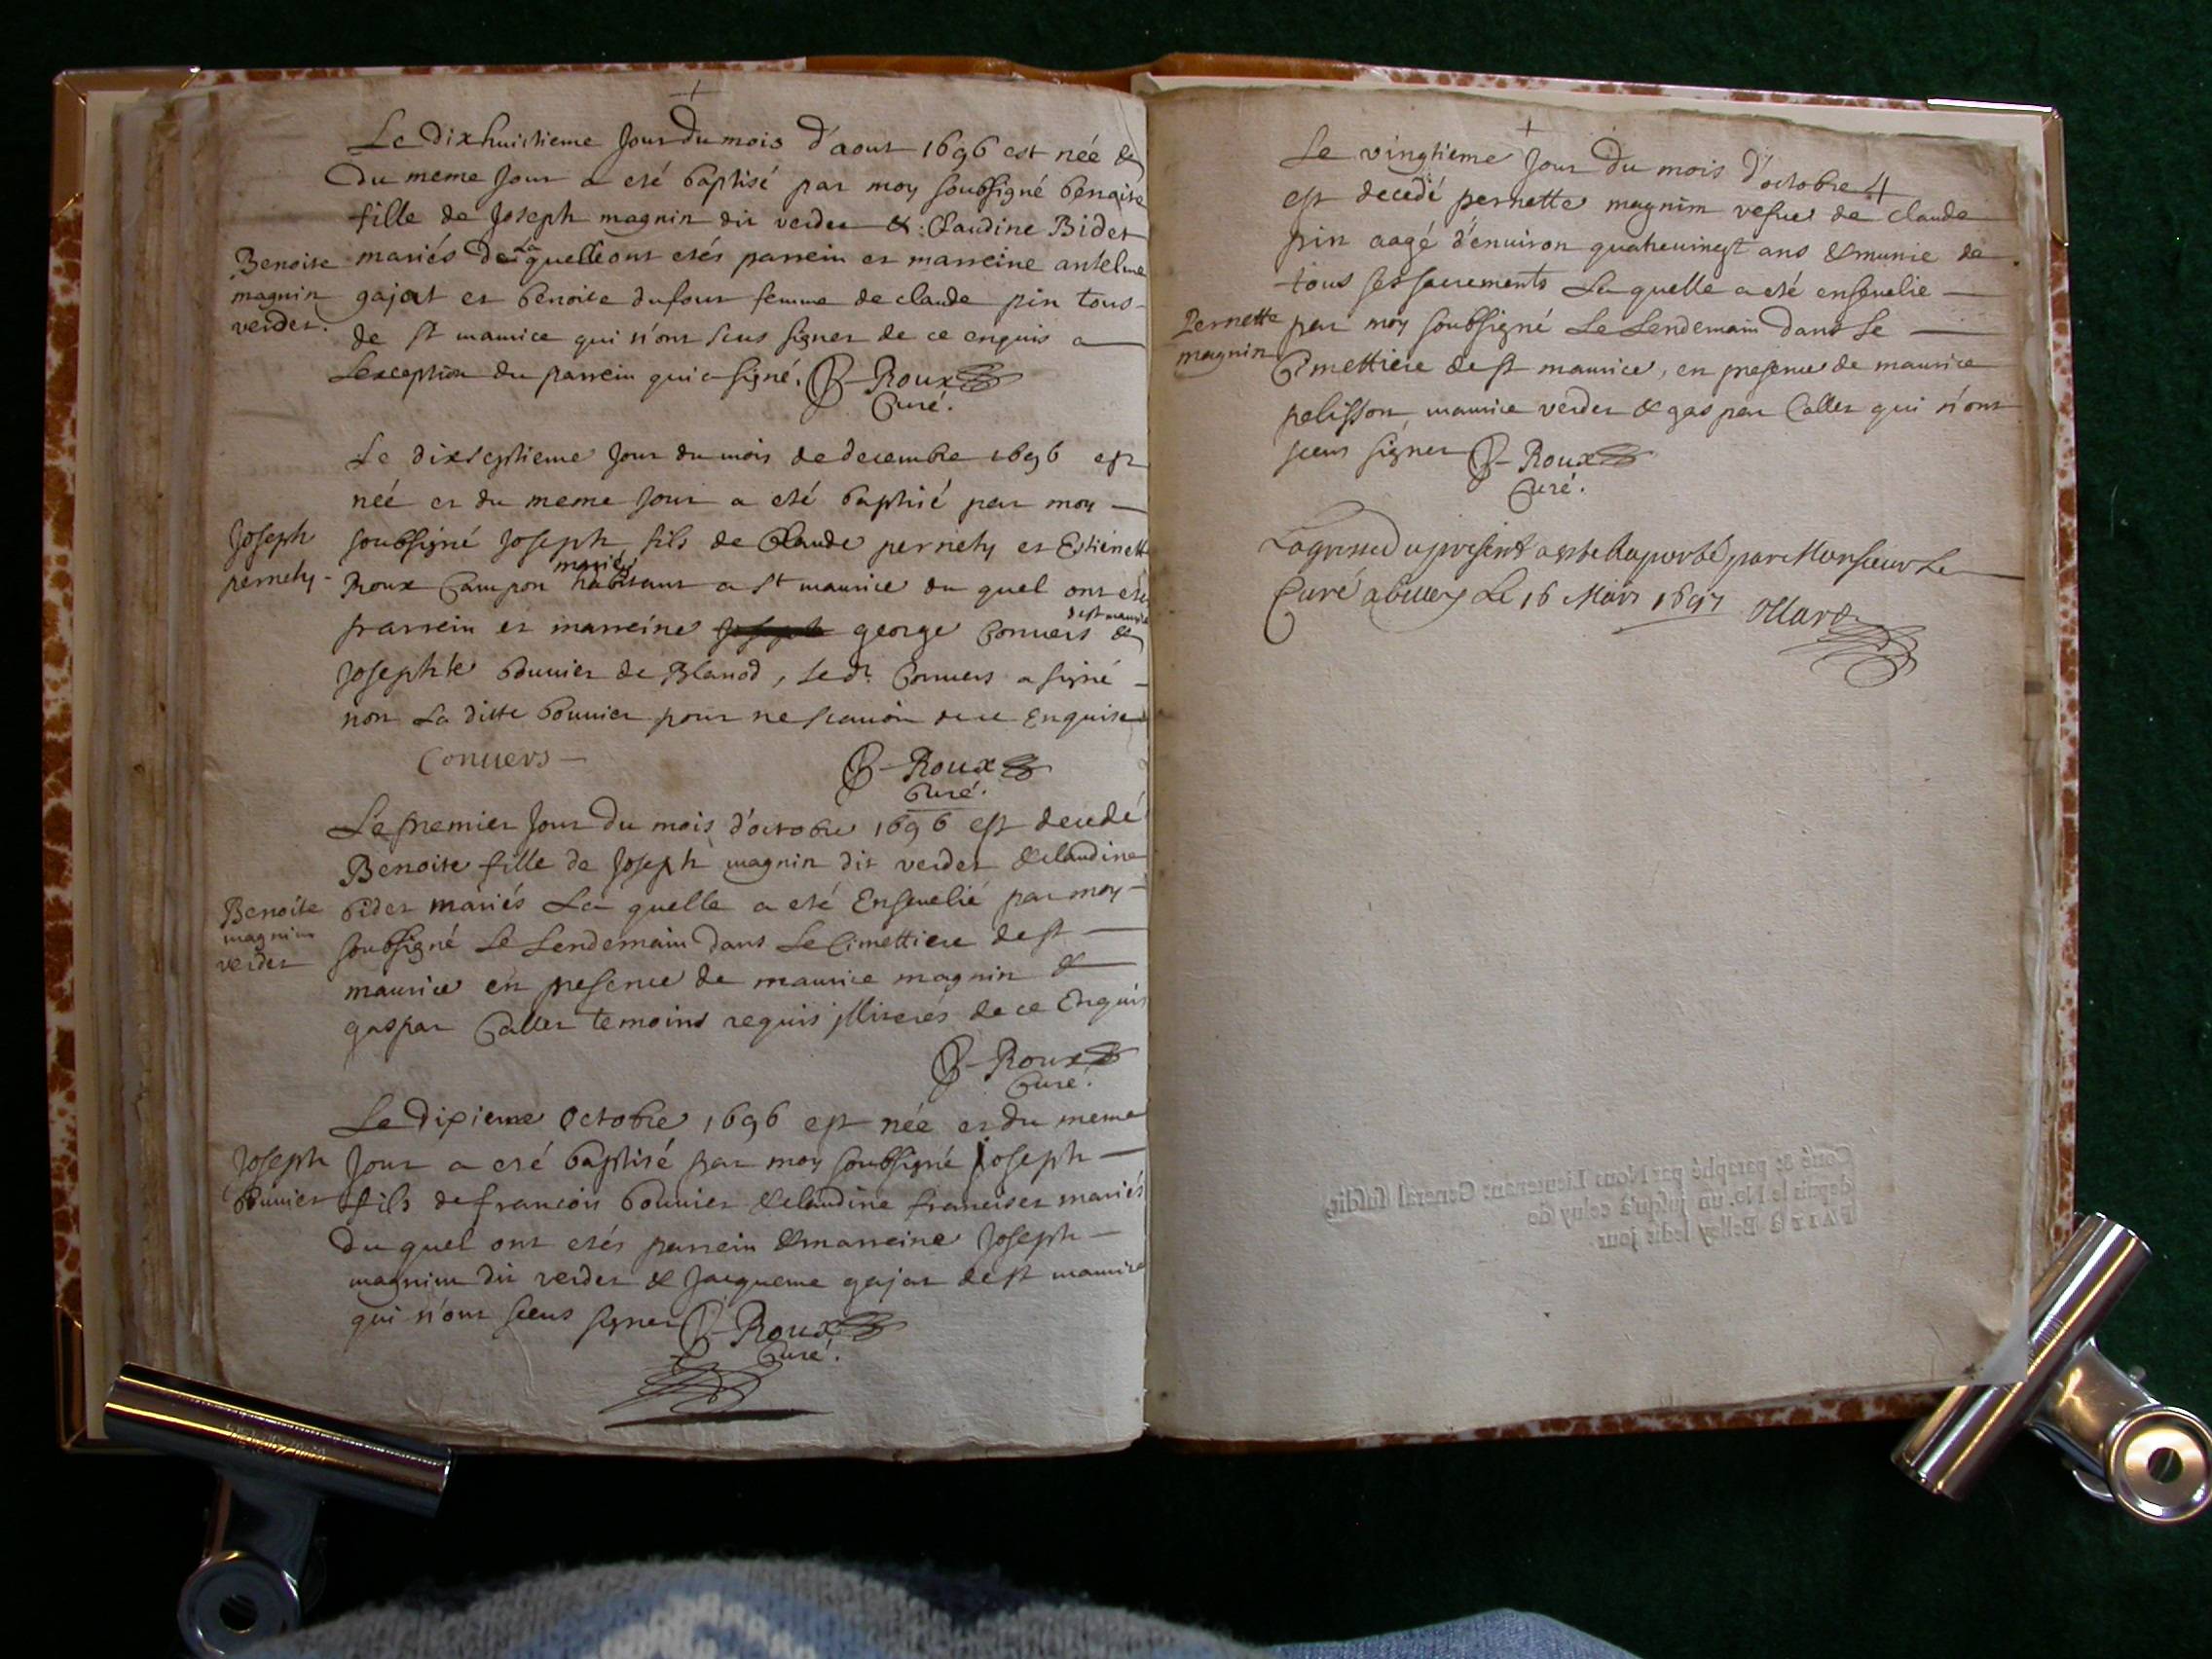 Le dixhuictieme Jour du mois d'aout 1696 est née &
du meme Jour a eté baptisé par moy soubsigné benoite
fille de Joseph magnin dit verdet & Claudine Bidet
Benoite
magnin
verdet.
mariés de la quelle ont etés parrein et marreine antelme
gajat et benoite dufour femme de claude pin tous
de st maurice qui n'ont sceus signer de ce enquis a
Lexception du parrein qui a signé. B Roux
Curé.
Le dixseptieme Jour du mois de decembre 1696 est
née et du meme Jour a eté baptisé par moy
Joseph
pernety
soubsigné Joseph fils de Claude pernety et Estienette
Roux Campon mariés habitant a st maurice du quel ont etés
parrein et marreine george Convers de st maurice &
Josephte bouvier de Blanod, le dt Convers a signé
non La ditte bouvier pour ne scavoir de ce Enquise
Convers
B Roux
Curé.
Le premier Jour du mois d'octobre 1696 est decedé
Benoite fille de Joseph magnin dit verdet & claudine
Benoite
magnin
verdet
bidet mariés La quelle a eté Ensevelié par moy
soubsigné Le Lendemain dans Le Cimettiere de st
maurice en presence de maurice magnin &
gaspar Callet temoins requis illiterés de ce Enquis
B Roux
Curé.
Le dixieme Octobre 1696 est née et du meme
Joseph
bouvier
Jour a eté baptisé par moy soubsigné Joseph
fils de francois bouvier & claudine francises mariés
du quel ont etés parrein & marreine Joseph
magnin dit verdet & Jacqueme gajat de st maurice
qui n'ont sceus signer B Roux
Curé.
Le vingtieme Jour du mois d'octobre
est decedé pernette magnin vefve de claude
pin aagé d'environ quatrevingt ans & munie de
tous ses sacrements La quelle a eté ensevelie
Pernette
magnin
par moy soubsigné Le Lendemain dans Le
Cimettiere de st maurice, en presence de maurice
pelisson maurice verdet & gaspar Callet qui n'ont
sceus signer B Roux
Curé.
La grosse du present a esté Raporté par Monsieur Le
Curé a belley Le 16 Mars 1697
Cotté & paraphé par Nous Lieutenant General susdit,
depuis le No. un jusqu'à celuy de
FAIT à Belley ledit jour.